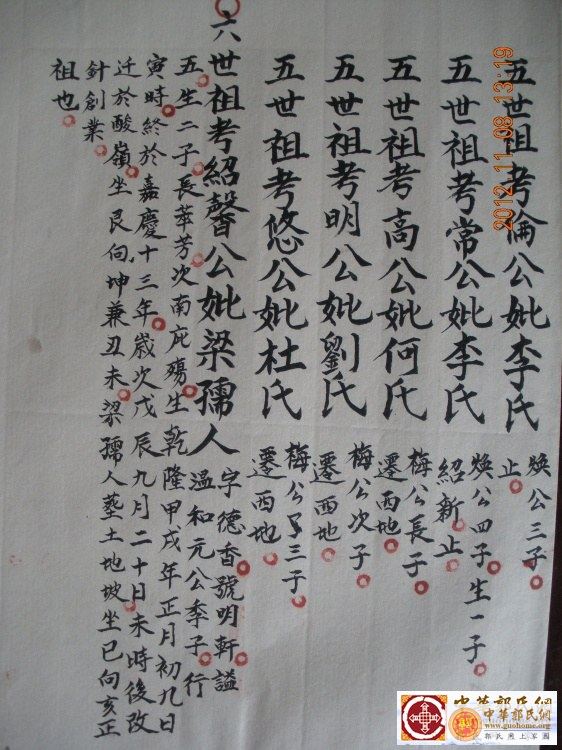 五世祖考倫公妣李氏
煥公三子
止
五世祖考常公妣李氏
煥公四子生一子
紹新止
五世祖考高公妣何氏
梅公長子
遷西地
五世祖考明公妣劉氏
梅公次子
遷西地
五世祖考悠公妣杜氏
梅公三子
遷西地
六世祖考紹馨公妣梁孺人
字德香號明軒謚
溫和元公季子行
五生二子長華芳次南庇殤生乾隆甲戌年正月初九日
寅時終於嘉慶十三年歲次戊辰九月二十日未時後改
迁於酸嶺坐艮向坤兼丑未梁孺人葬土地坡坐巳向亥正
針創業
祖也
2012.11.08 13:19
中華郭氏網
中華郭氏網
www.guohome.org
郭氏網上家園